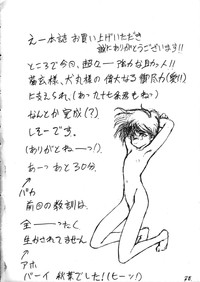 えー本誌お買い上げいただき
誠にありがとうございます!!
ところで今回、超々一強力な助っ人!!
蛮玄様、犬丸様の偉大なる御尽力(愛!!)
に支えられ、(あっ九十七条君もね)
なんとか完成(?)
しそーです。
(ありがとねーっ!)
あーっあと30分。
バカ
前回の教訓は、
全一ったく
生かされてません
アホ
バーイ 秋葉でした!!(ヒーン!)
78